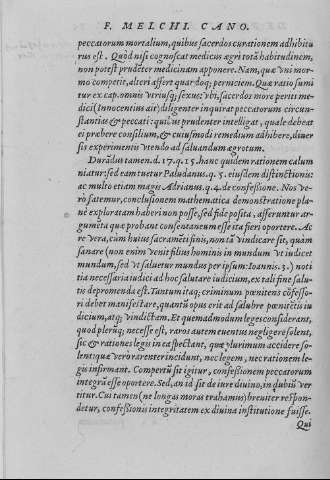 F. MELCHI. CANO.
peccatorum mortalium, quibus sacerdos curationem adhibitu
rus est. Quòd nisi cognoscat medicus agri totā habitudinem,
non potest prudēter medicinam apponere. Nam, quæ vni mor-
mo competit, alteri affert quandoq; perniciem. Quæ ratio sumi
tur ex cap. omnis vtriusq; sexus: vbi, sacerdos more periti me
dici (Innocentius ait) diligenter inquirat peccatorum circun-
stantias & peccati: quibus prudenter intelligat, quale debeat
ei præbere consilium, & cuiusmodi remedium adhibere, diuer
sis experimentis vtendo ad saluandum ægrotum.
Durādus tamen. d. 17. q. 15. hanc quidem rationem calum
niatur: sed eam tuetur Paludanus. q. 5. eiusdem distinctionis:
ac multo etiam magis Adrianus. q. 4. de confessione. Nos ve-
rò fatemur, conclusionem mathematica demonstratione pla-
nè exploratam haberi non posse, sed fide posita, afferuntur ar-
gumēta quæ probant consentaneum esse ita fieri oportere. Ac
re vera, cum huius sacramēti finis, non tā vindicare sit, quàm
sanare (non enim venit filius hominis in mundum vt iudicet
mundum, sed vt saluetur mundus per ipsum: Ioannis. 3.) noti
tia necessaria iudici ad hoc salutare iudicium, ex tali fine salu-
tis depromenda est. Tantum itaq; criminum pœnitens cōfesso-
ri debet manifestare, quantū opus erit ad salubre pœnitētis iu
dicium, atq; vindictam. Et quemadmodum leges considerant,
quod plerūq; necesse est, raros autem euentus negligere solent,
sic & rationes legis in ea spectant, quæ plurimum accidere so-
lent: quæ verò rarenter incidunt, nec legem, nec rationem le-
gis infirmant. Compertū sit igitur, confessionem peccatorum
integrā esse oportere. Sed, an id sit de iure diuino, in dubiū ver
titur. Cui tamen (ne longas moras trahamus) breuiter respon-
detur, confessionis integritatem ex diuina institutione fuisse.
Qui